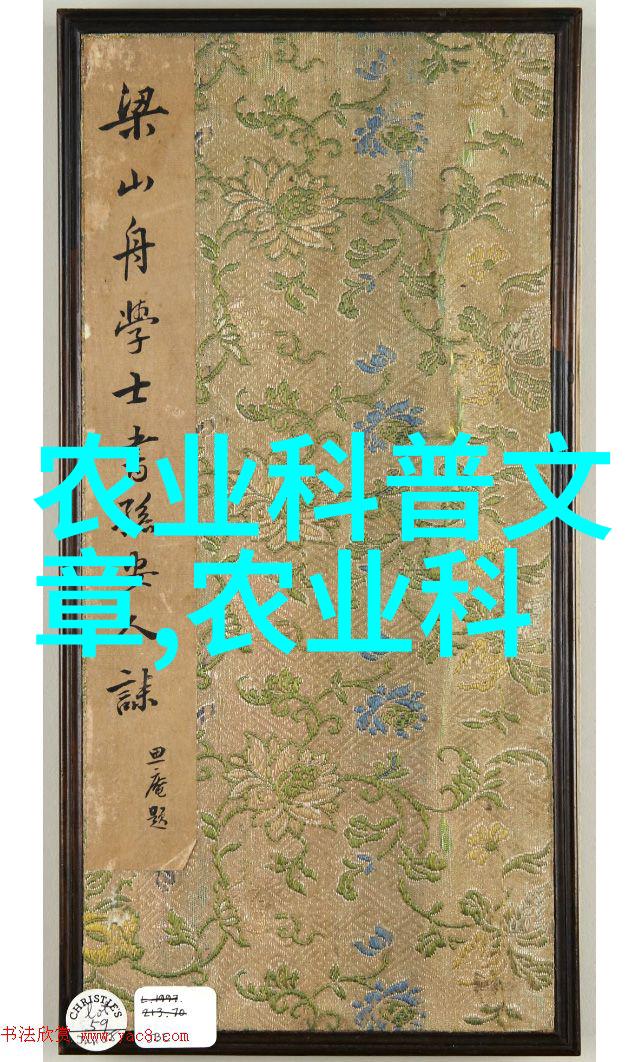 梁山舟學士書孫安人誄
思庵題
农业科普文
章,农业科
CHRISTIE'S
lot
59
L.1997.
213.70
书法欣赏 www.yac8.com